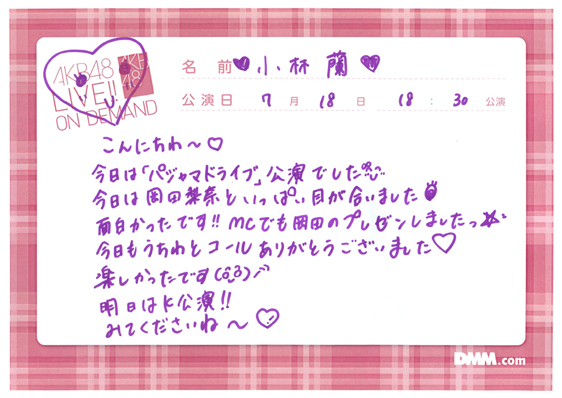 AKB48
LIVE!!
ON DEMAND
AKB
48
名前 小林 蘭
公演日 7月18日 18:30 公演
こんにちわ〜♡
今日は「パジャマドライブ」公演でした
今日は岡田梨奈といっぱい目が合いました
面白かったです!! MCでも岡田のプレゼンしましたっ
今日もうちわとコールありがとうございました♡
楽しかったです
明日はK公演!!
みてくださいね〜♡
DMM.com